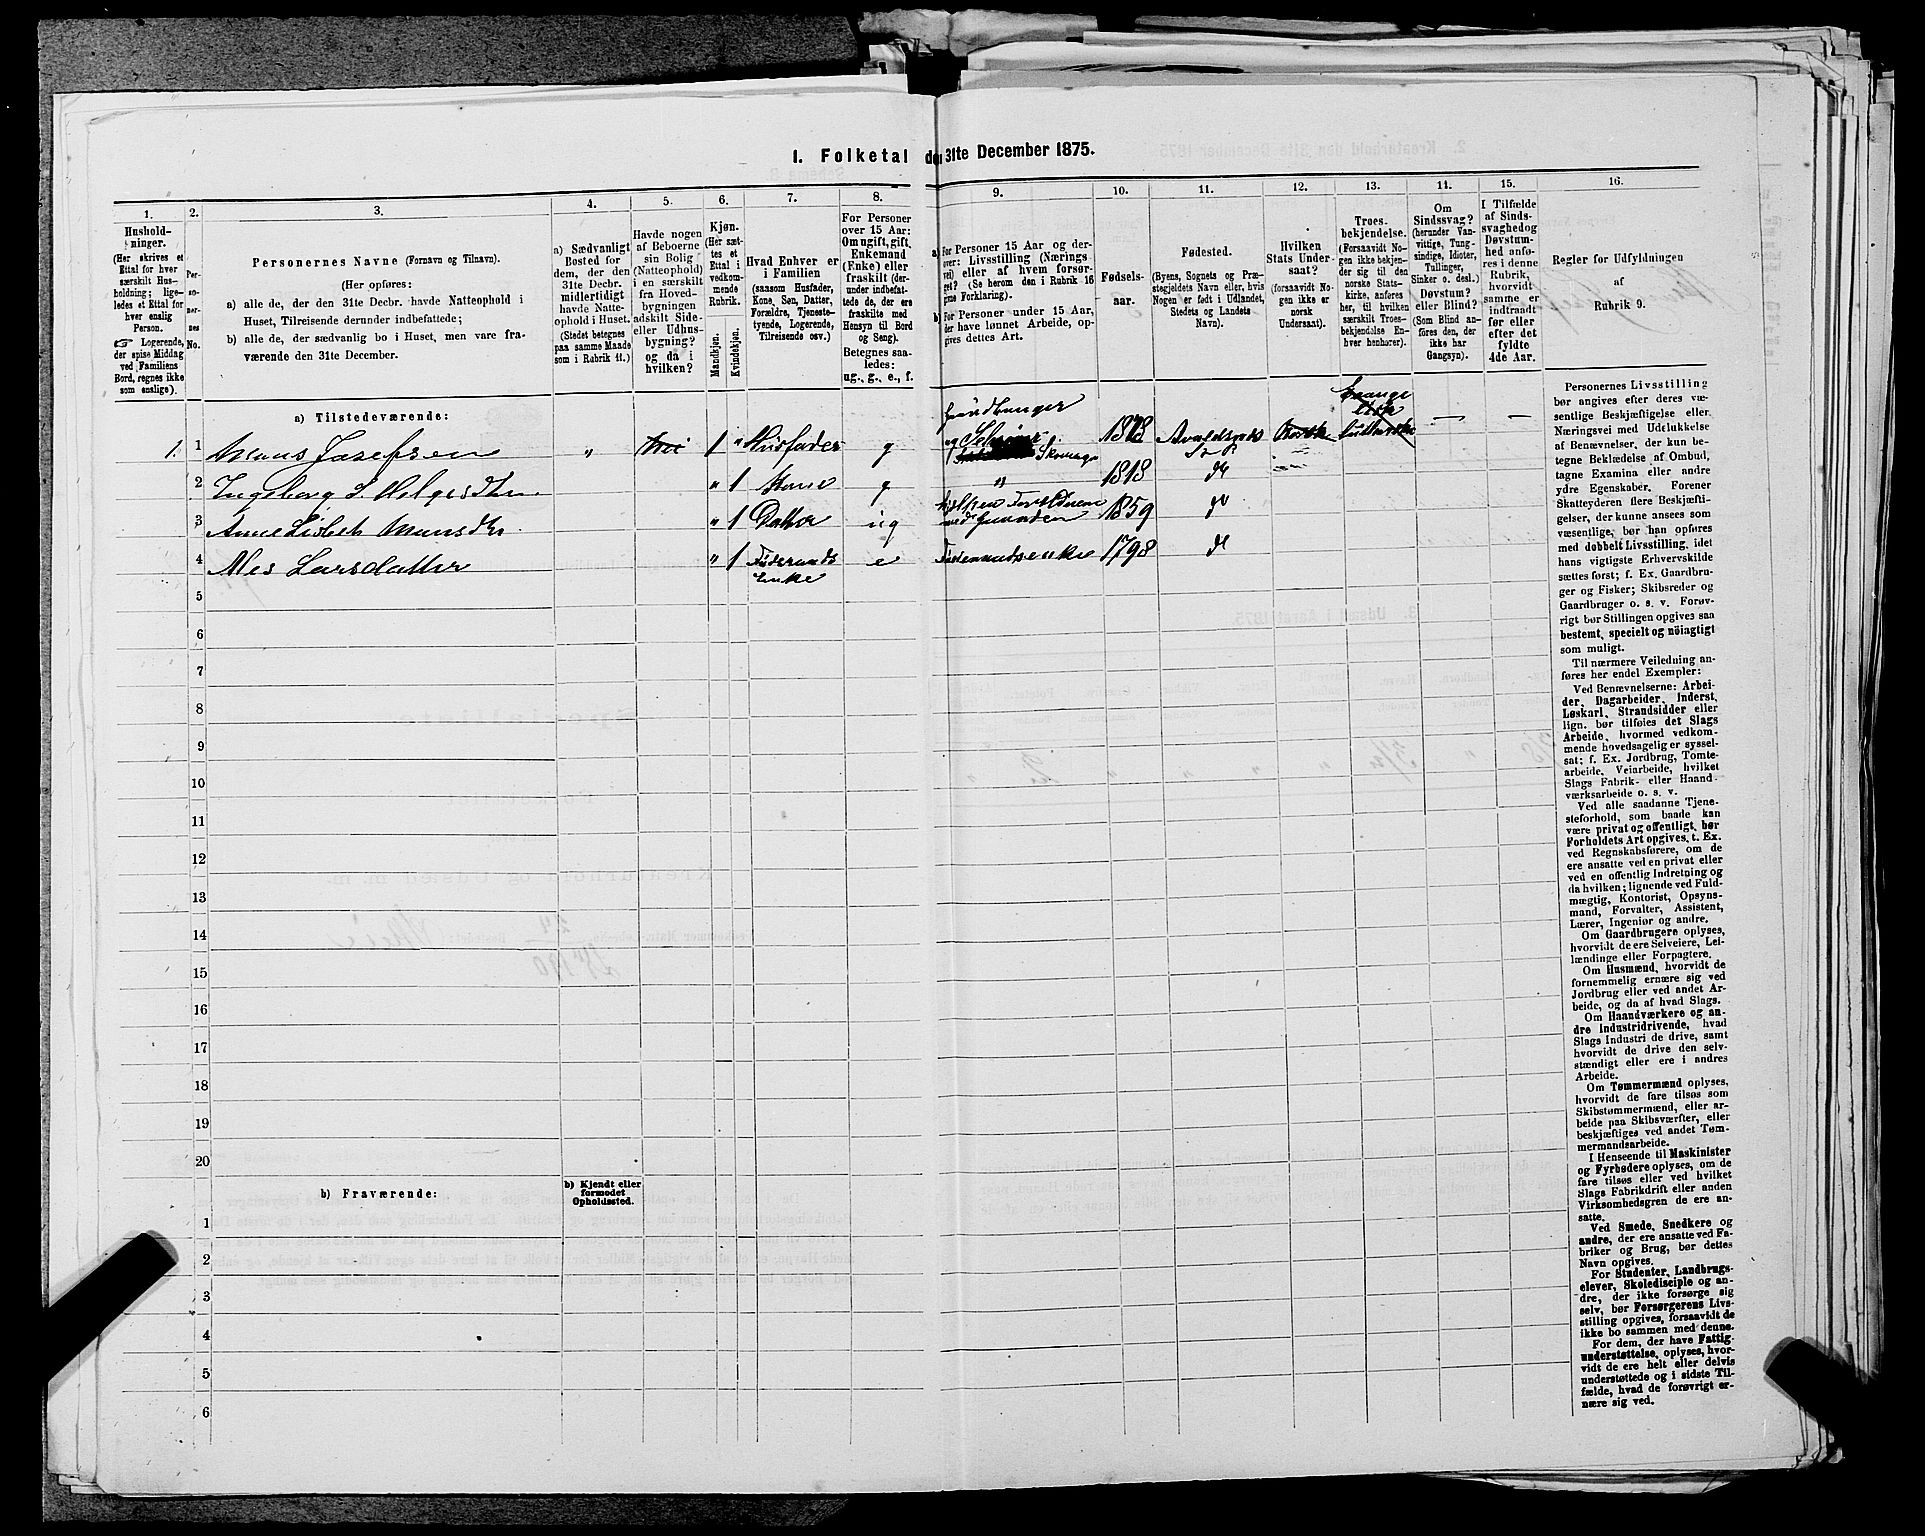 1. Folketal den 31te December 1875.
1.
2.
3.
4.
5.
6.
7.
8.
9.
10.
11.
12.
13.
14.
15.
16.
Hushold-
ninger.
(Her skrives et
Ettal for hver
særskilt Hus-
holdning; lige-
ledes et Ettal for
hver enslig
Person.
☞ Logerende,
der spise Middag
ved Familiens
Bord, regnes ikke
som enslige).
Per-
so-
ner-
nes
No.
Personernes Navne (Fornavn og Tilnavn).
(Her opføres:
a) alle de, der den 31te Decbr. havde Natteophold i
Huset, Tilreisende derunder indbefattede;
b) alle de, der sædvanlig bo i Huset, men vare fra-
værende den 31te December.
a) Sædvanligt
Bosted for
dem, der den
31te Decbr.
midlertidigt
havde Natte-
ophold i Huset.
(Stedet betegnes
paa samme Maade
som i Rubrik 11.)
Havde nogen
af Beboerne
sin Bolig
(Natteophold)
i en særskilt
fra Hoved-
bygningen
adskilt Side-
eller Udhus-
bygning?
og da i
hvilken?
Kjøn.
(Her sæt-
tes et
Ettal i
vedkom-
mende
Rubrik.
Mandkjøn.
Kvindekjøn.
Hvad Enhver er
i Familien
(saasom Husfader,
Kone, Søn, Datter,
Forældre, Tjeneste-
tyende, Logerende,
Tilreisende osv.)
For Personer
over 15 Aar:
Om ugift, gift,
Enkemand
(Enke) eller
fraskilt (der-
under indbefat-
tede de, der ere
fraskilte med
Hensyn til Bord
og Seng).
Betegnes saa-
ledes:
ug., g., e., f.
a) For Personer 15 Aar og der-
over: Livsstilling (Nærings
vei) eller af hvem forsør-
get? (Se herom den i Rubrik 16
givne Forklaring).
b) For Personer under 15 Aar,
der have lønnet Arbeide, op-
gives dettes Art.
Fødsels-
aar.
Fødested.
(Byens, Sognets og Præ-
stegjeldets Navn eller, hvis
Nogen er født i Udlandet,
Stedets og Landets
Navn).
Hvilken
Stats Under-
saat?
(forsaavidt No-
gen ikke er
norsk
Undersaat).
Troes-
bekjendelse.
(Forsaavidt No-
gen ikke bekjen-
der sig til den
norske Stats-
kirke, anføres
her, til hvilken
særskilt Troes-
bekjendelse En-
hver henhører).
Om
Sindssvag?
(herunder Van-
vittige, Tung-
sindige, Idioter,
Tullinger,
Sinker o. desl.)
Døvstum?
eller Blind?
(Som Blind an-
føres den, der
ikke har
Gangsyn).
I Tilfælde
af Sinds-
svaghed og
Døvstum-
hed anfø-
res i denne
Rubrik,
hvorvidt
samme er
indtraadt
før eller
efter det
fyldte
4de Aar.
Regler for Udfyldningen
af
Rubrik 9.
a) Tilstedeværende:
1. 1 Mons Josefsen " 1 " Husfader g og Selveier Skomager 1818 Avaldsnes S. P. Norsk — —
2 Ingeborg S. Helgesdtr. " 1 Kone g " 1818 do
3 Anne Lisbet Monsdtr " 1 Datter ug 1859 do
4 Larsdatter " 1 Føderaads Enke e Føderaadsenke 1798 do
5
6
7
8
9
10
11
12
13
14
15
16
17
18
19
20
b) Fraværende:
b) Kjendt eller
formodet
Opholdssted.
1
2
3
4
5
6
Personernes Livsstilling
bør angives efter deres væ-
sentlige Beskjæftigelse eller
Næringsvei med Udelukkelse
af Benævnelser, der kun be-
tegne Beklædelse af Ombud,
tagne Examina eller andre
ydre Egenskaber. Forener
Skatteyderen flere Beskjæfti-
gelser, der kunne ansees som
væsentlige, bør han opføres
med dobbelt Livsstilling, idet
hans vigtigste Erhvervskilde
sættes først; f. Ex. Gaardbru-
ger og Fisker; Skibsreder og
Gaardbruger o. s. v. Forøv-
rigt bør Stillingen opgives saa
bestemt, specielt og nöiagtigt
som muligt.
Til nærmere Veiledning an-
føres her endel Exempler:
Ved Benævnelserne: Arbei-
der, Dagarbeider, Inderst,
Løskarl, Strandsidder eller
lign. bør tilføies det Slags
Arbeide, hvormed vedkom-
mende hovedsagelig er syssel-
sat; f. Ex. Jordbrug, Tomte-
arbeide, Veiarbeide, hvilket
Slags Fabrik- eller Haand-
værksarbeide o. s. v.
Ved alle saadanne Tjene-
steforhold, som baade kan
være privat og offentligt, bør
Forholdets Art opgives, t. Ex.
ved Regnskabsførere, om de
ere ansatte ved en privat eller
ved en offentlig Indretning og
da hvilken; lignende ved Fuld-
mægtig, Kontorist, Opsyns-
mand, Forvalter, Assistent,
Lærer, Ingeniør og andre.
Om Gaardbrugere oplyses,
hvorvidt de ere Selveiere, Lei-
lændinge eller Forpagtere.
Om Husmænd, hvorvidt de
fornemmelig ernære sig ved
Jordbrug eller ved andet Ar-
beide, og da af hvad Slags.
Om Haandværkere og an-
dre Industridrivende, hvad
Slags Industri de drive, samt
hvorvidt de drive den selv-
stændigt eller ere i andres
Arbeide.
Om Tømmermænd oplyses,
hvorvidt de fare tilsøs som
Skibstømmermænd, eller ar-
beide paa Skibsværfter, eller
beskjæftiges ved andet Tøm-
mermandsarbeide.
I Henseende til Maskinister
og Fyrbødere oplyses, om de
fare tilsøs eller ved hvilket
Slags Fabrikdrift eller anden
Virksomhedsgren de ere an-
satte.
Ved Smede, Snedkere og
andre, der ere ansatte ved Fa-
briker og Brug, bør dettes
Navn opgives.
For Studenter, Landbrugs-
elever, Skoledisciple og an-
dre, der ikke forsørge sig
selv, bør Forsørgerens Livs-
stilling opgives, forsaavidt de
ikke bo sammen med denne.
For dem, der have Fattig-
understøttelse, oplyses, hvor-
vidt de ere helt eller delvis
understøttede og i sidste Til-
fælde, hvad de forøvrigt er-
nære sig ved.